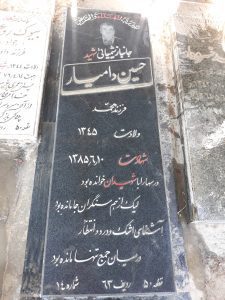 جانباز شیمیائی شهید
حسین دامیار
فرزند محمد
ولادت ۱۳۴۵
شهادت ۱۳۸۵/۶/۱۰
در بهاران با شهیدان خوانده بود
لیک از هم سنگران جا مانده بود
آشنای اشک و درد و انتظار
در میان جمع تنها مانده بود
قطعه ۵۰ ردیف ۶۳ شماره ۱۴